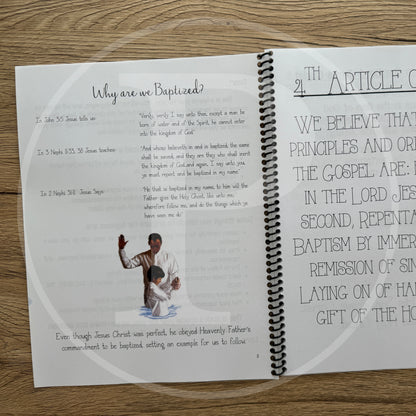 Why are we Baptized?
In John 3:5 Jesus tells us:
"Verily, verily, I say unto thee, except a man be
born of water and of the Spirit, he cannot enter
into the kingdom of God."
In 3 Nephi 11:33, 38 Jesus teaches:
"And whoso believeth in and is baptized, the same
shall be saved; and they are they who shall inherit
the kingdom of God.and again, I say unto you,
ye must repent, and be baptized in my name"
In 2 Nephi 31:12 Jesus Says:
"He that is baptized in my name, to him will the
Father give the Holy Ghost, like unto me;
wherefore follow me, and do the things which ye
have seen me do"
Even though Jesus Christ was perfect, he obeyed Heavenly Father's
commandment to be baptized, setting an example for us to follow.
4TH ARTICLE O
WE BELIEVE THAT
PRINCIPLES AND OR
THE GOSPEL ARE:
IN THE LORD JES
SECOND, REPENTA
BAPTISM BY IMMER
REMISSION OF SIN
LAYING ON OF HAN
GIFT OF THE HO